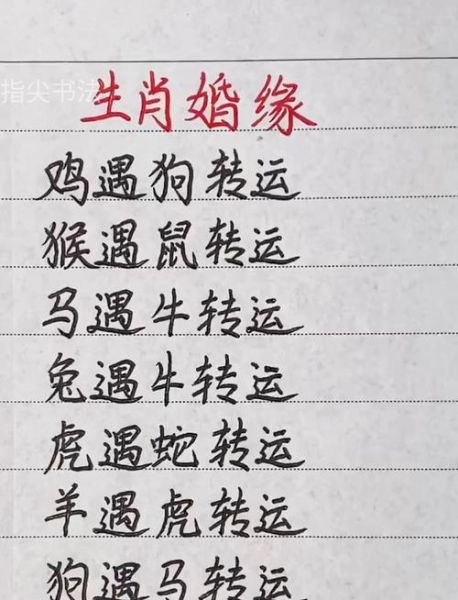 指尖书法
生肖婚缘
鸡遇狗转运
猴遇鼠转运
马遇牛转运
兔遇牛转运
虎遇蛇转运
羊遇虎转运
狗遇马转运